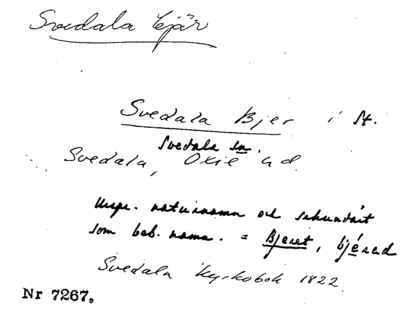 Svedala Bjär
Svedala Bjer i St.
Svedala sn.
Svedala, Oxie hd.
Urspr. naturnamn och sekundärt
som beb. namn. = Bjeret, bjéred
Svedala kyrkobok 1822.
Nr 7267.